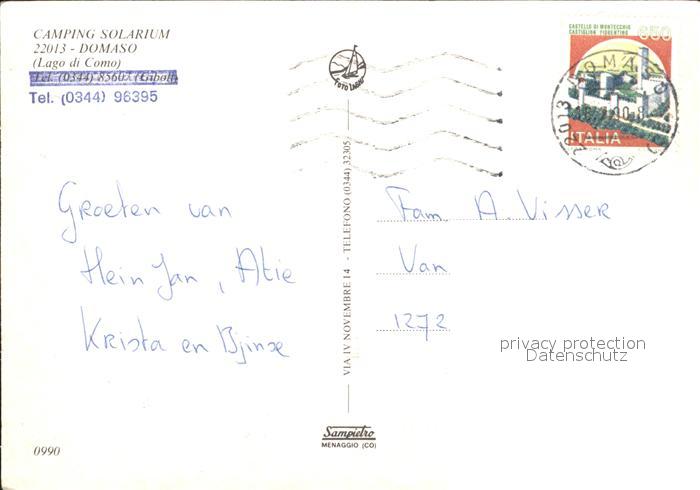 CAMPING SOLARIUM
22013 - DOMASO
(Lago di Como)
Tel. (0344) 85607
Tel. (0344) 96395
CASTELLO DI MONTECCHIO
CASTIGLION FIORENTINO
650
ITALIA
22013 DOMASO
Groeten van
Hein Jan, Atie
Krista en Bjinse
Fam. A. Visser
Van
1272
privacy protection
Datenschutz
VIA IV NOVEMBRE 14 - TELEFONO (0344) 32305
Sampietro
MENAGGIO (CO)
0990